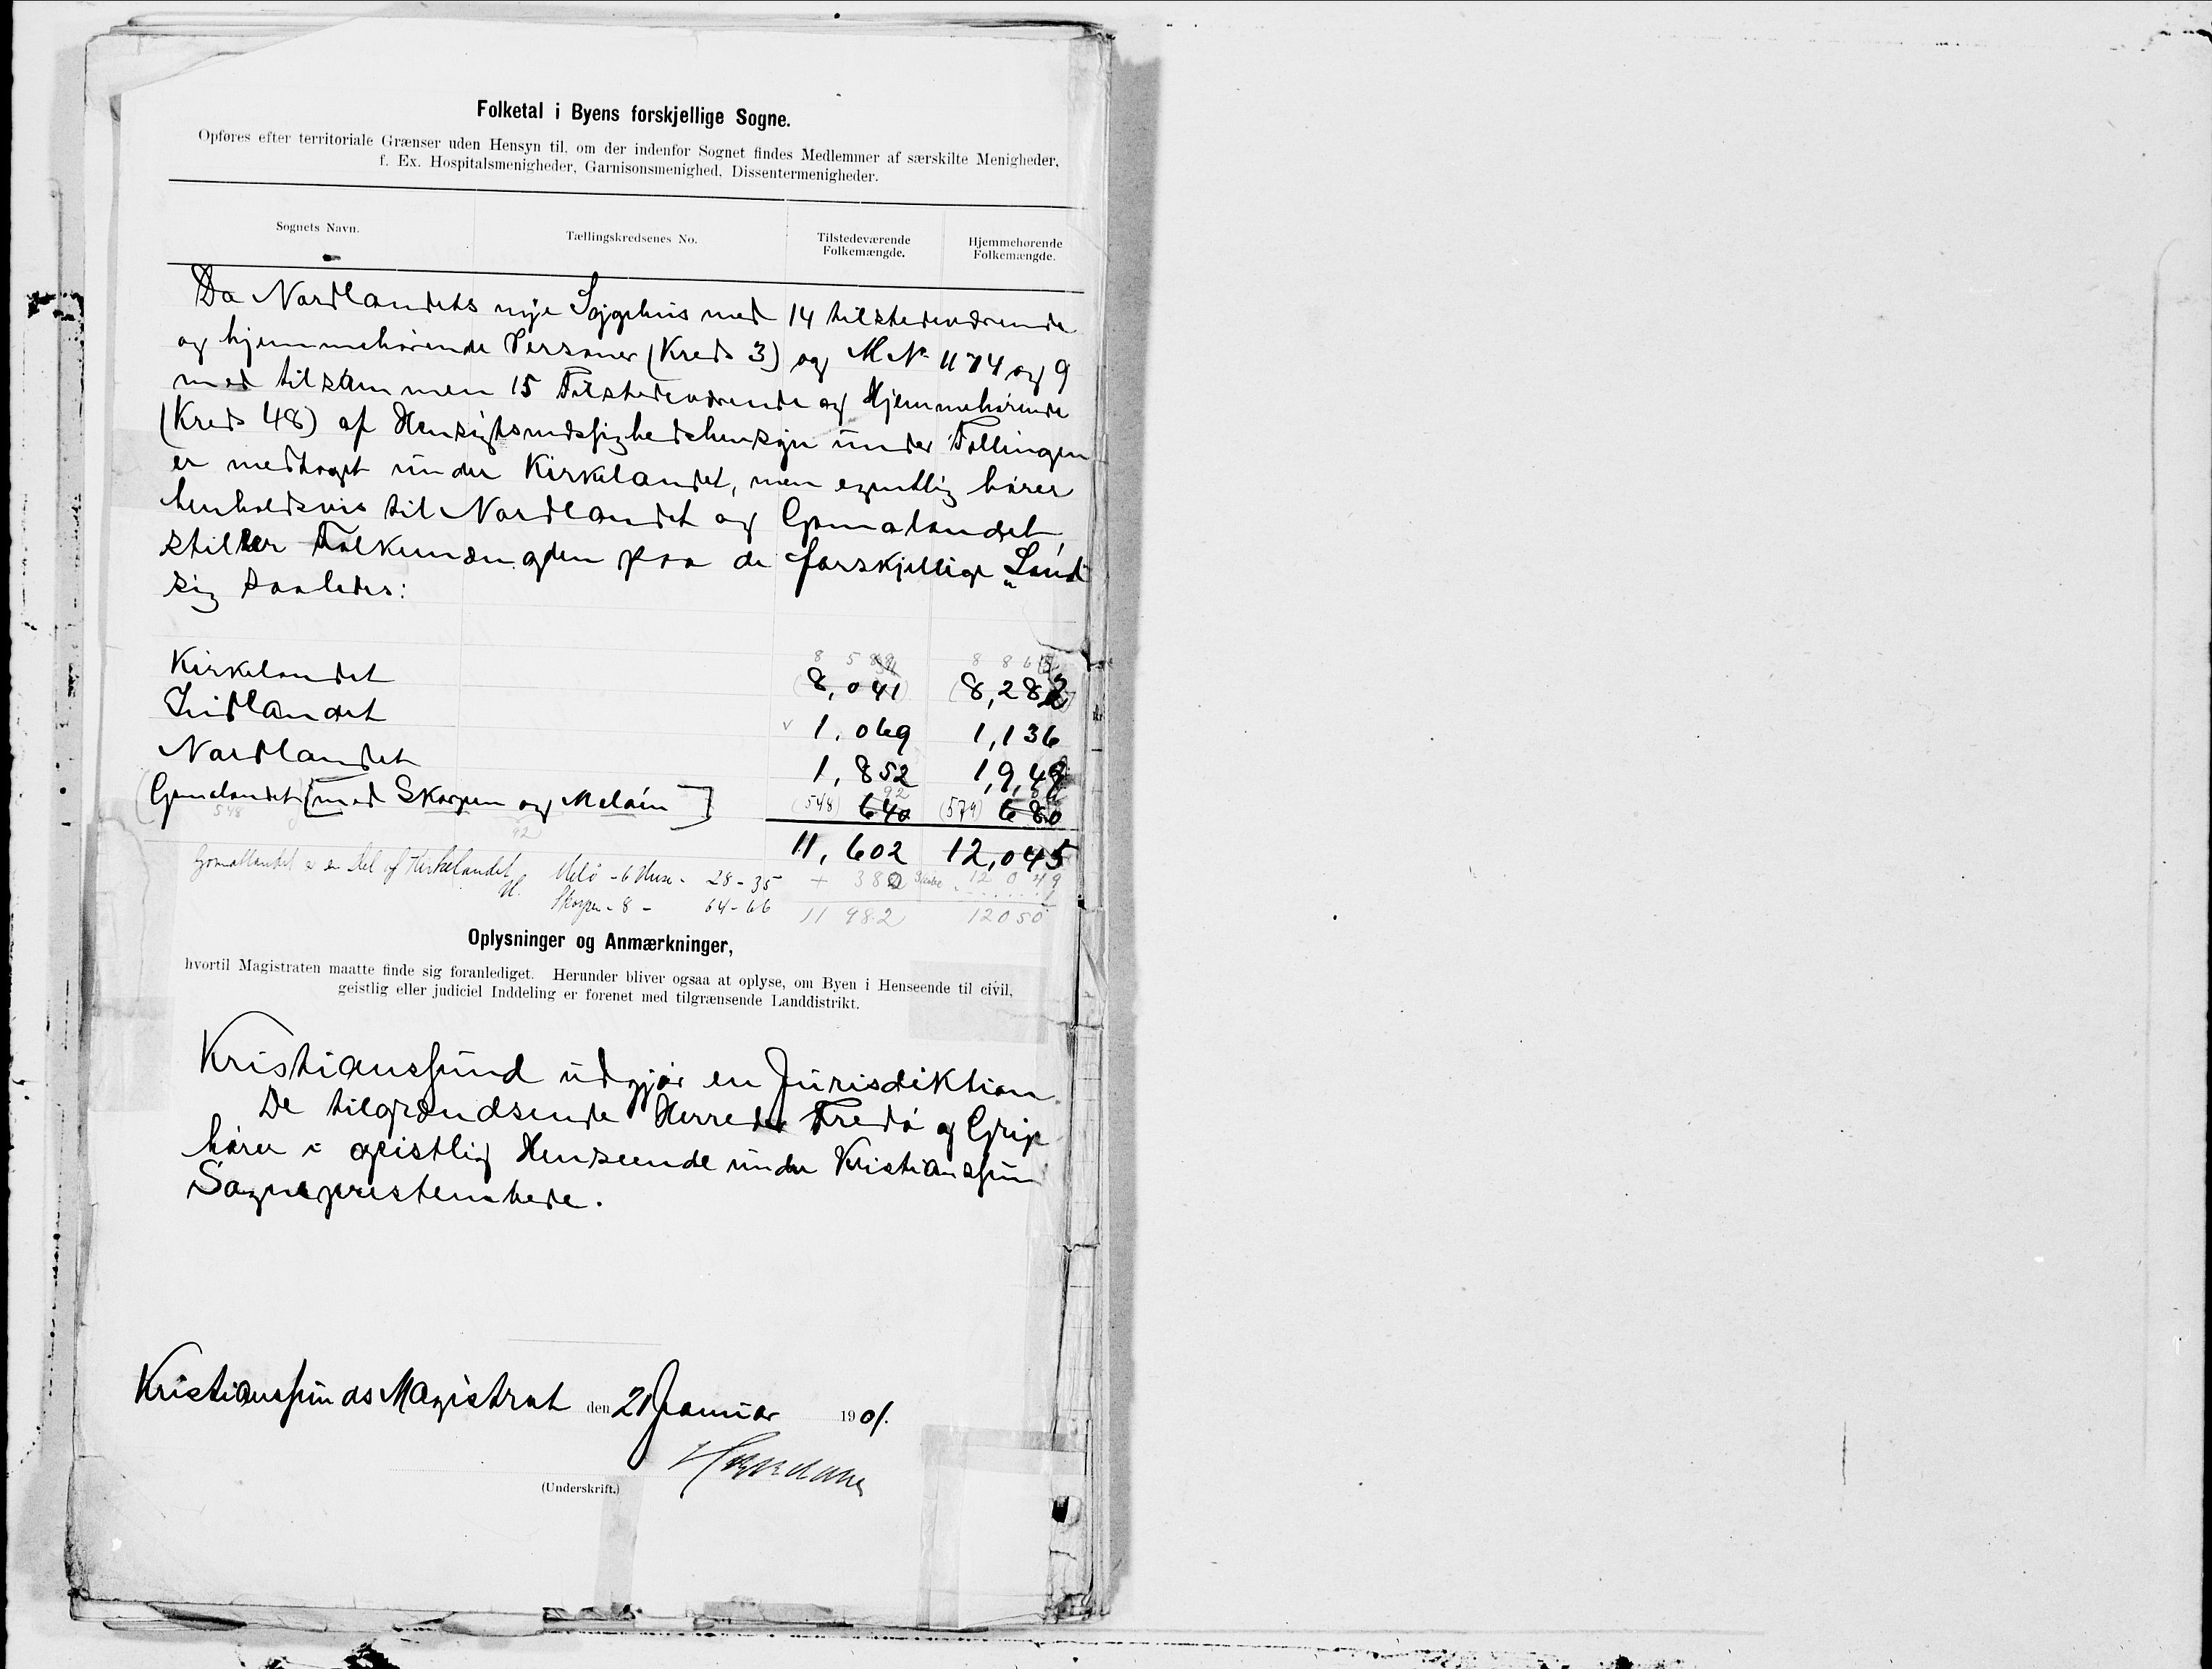 Folketal i Byens forskjellige Sogne.
Opføres efter territoriale Grænser uden Hensyn til, om der indenfor Sognet findes Medlemmer af særskilte Menigheder,
f. Ex. Hospitalsmenigheder, Garnisonsmenighed, Dissentermenigheder.
Sognets Navn. Tællingskredsenes No. Tilstedeværende Folkemængde. Hjemmehørende Folkemængde.
Da Nordlandets nye Sygehus med 14 tilstedeværende
og hjemmehørende Personer (Kreds 3) og M.N. 1174 og 9
med tilsammen 15 Tilstedeværende og Hjemmehørende
(Kreds 48) af Hensigtsmæssighedshensyn under Tællingen
er medtaget under Kirkelandet, men egentlig hører
henholdsvis til Nordlandet og Gomalandet,
stiller Folkemængden paa de forskjellige "Land
sig saaledes:
8 5 89 8 8 6
Kirkelandet (8,041) (8,282)
Indlandet 1,069 1,136
Nordlandet 1,852 1,948
92
Gomalandet [med Skorpen og Meløen] (548) 640 (579) 680
548 92
11,602 12,045
Gomallandet er en Del af Kirkelandet Melö - 6 Huse - 28 - 35 + 380 12 0 49
H. Skorpen - 8 - 64 - 66 11 982 12050
Oplysninger og Anmærkninger,
hvortil Magistraten maatte finde sig foranlediget. Herunder bliver ogsaa at oplyse, om Byen i Henseende til civil,
geistlig eller judiciel Inddeling er forenet med tilgrænsende Landdistrikt.
Kristianssund udgjør en Jurisdiktion.
De tilgrændsende Herreder Fredø og Grip
hører i geistlig Henseende under Kristianssun
Sognepræstembede.
Kristianssunds Magistrat den 21 Januar 1901.
(Underskrift.)